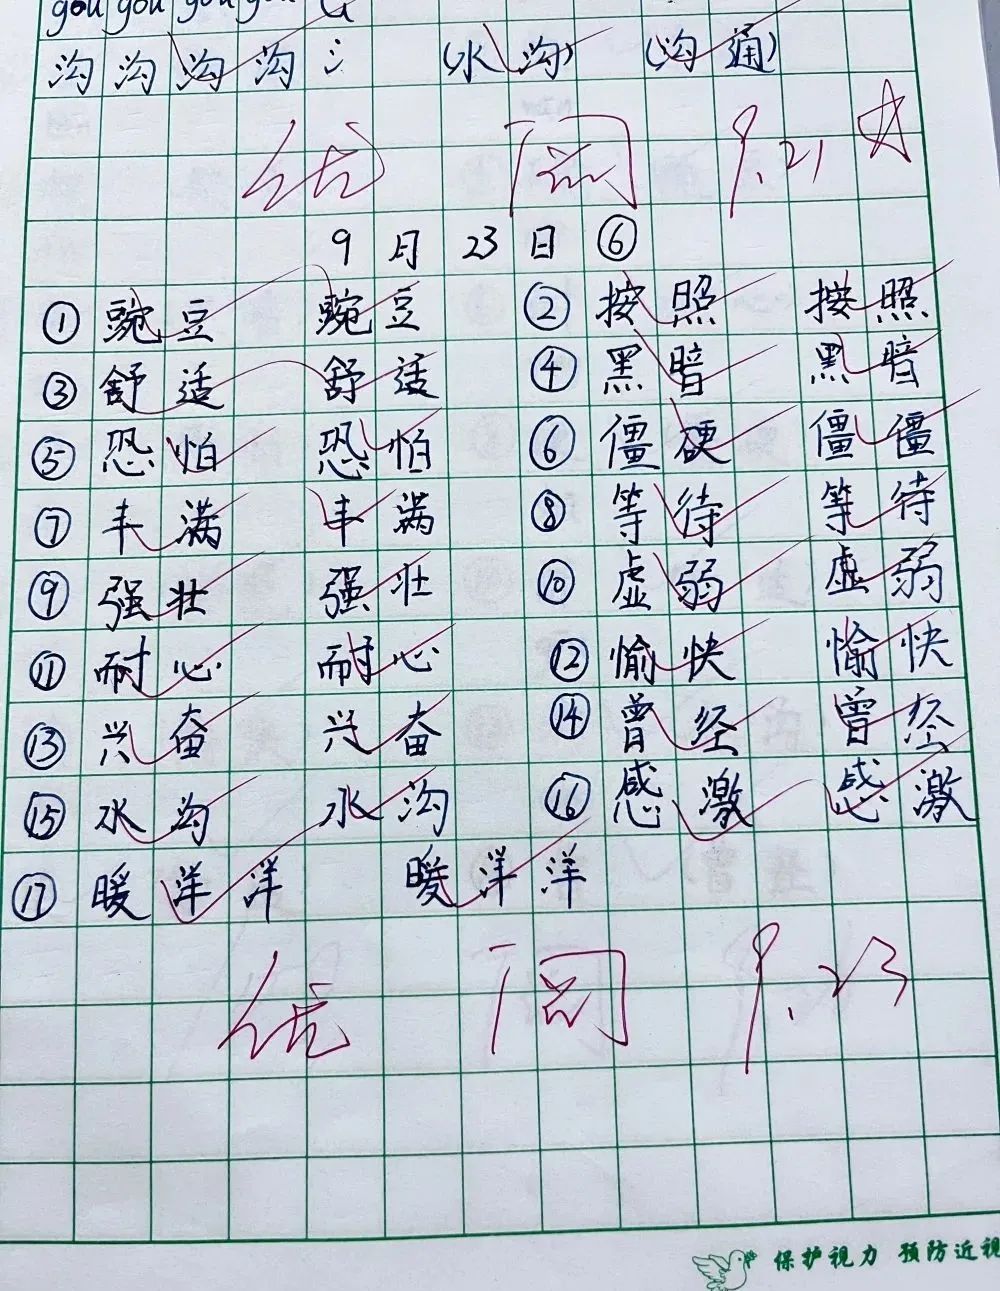 gou gou gou gou
沟 沟 沟 沟 氵 (水 沟) (沟 通)
优 阅 9.21
9 月 23 日 ⑥
① 豌 豆 豌 豆 ② 按 照 按 照
③ 舒 适 舒 适 ④ 黑 暗 黑 暗
⑤ 恐 怕 恐 怕 ⑥ 僵 硬 僵 僵
⑦ 丰 满 丰 满 ⑧ 等 待 等 待
⑨ 强 壮 强 壮 ⑩ 虚 弱 虚 弱
⑪ 耐 心 耐 心 ⑫ 愉 快 愉 快
⑬ 兴 奋 兴 奋 ⑭ 曾 经 曾 经
⑮ 水 沟 水 沟 ⑯ 感 激 感 激
⑰ 暖 洋 洋 暖 洋 洋
优 阅 9.23
保护视力 预防近视